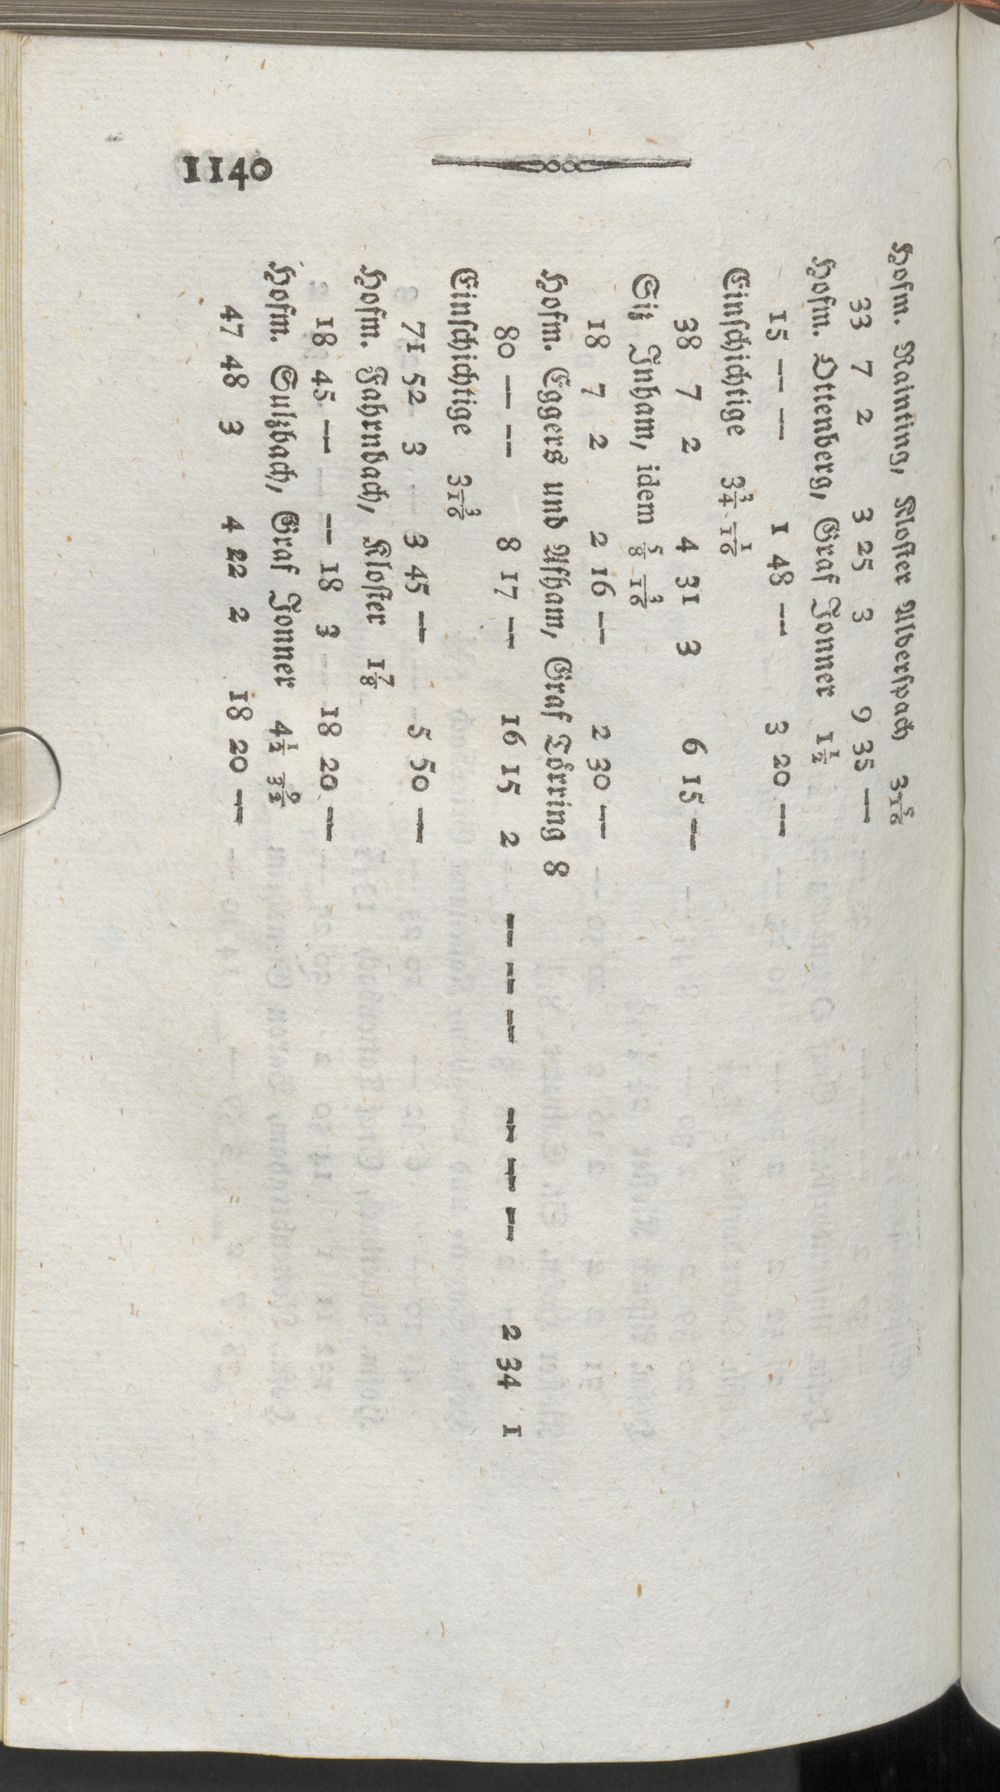 1140
Hofm. Rainting, Kloster Alderspach 3 5/16
33 7 2 3 25 3 9 35 —
Hofm. Ottenberg, Graf Jonner 1 1/2
15 — — 1 48 — 3 20 —
Einschichtige 3 3/4 1/16
38 7 2 4 31 3 6 15 —
Siz Inham, idem 5/8 3/16
18 7 2 2 16 — 2 30 —
Hofm. Eggers und Afham, Graf Törring 8
80 — — 8 17 — 16 15 2 — — — — — — 2 34 1
Einschichtige 3 3/16
71 52 3 3 45 — 5 50 —
Hofm. Fahrnbach, Kloster 1 7/8
18 45 — — 18 3 18 20 —
Hofm. Sulzbach, Graf Jonner 4 1/2 9/32
47 48 3 4 22 2 18 20 —